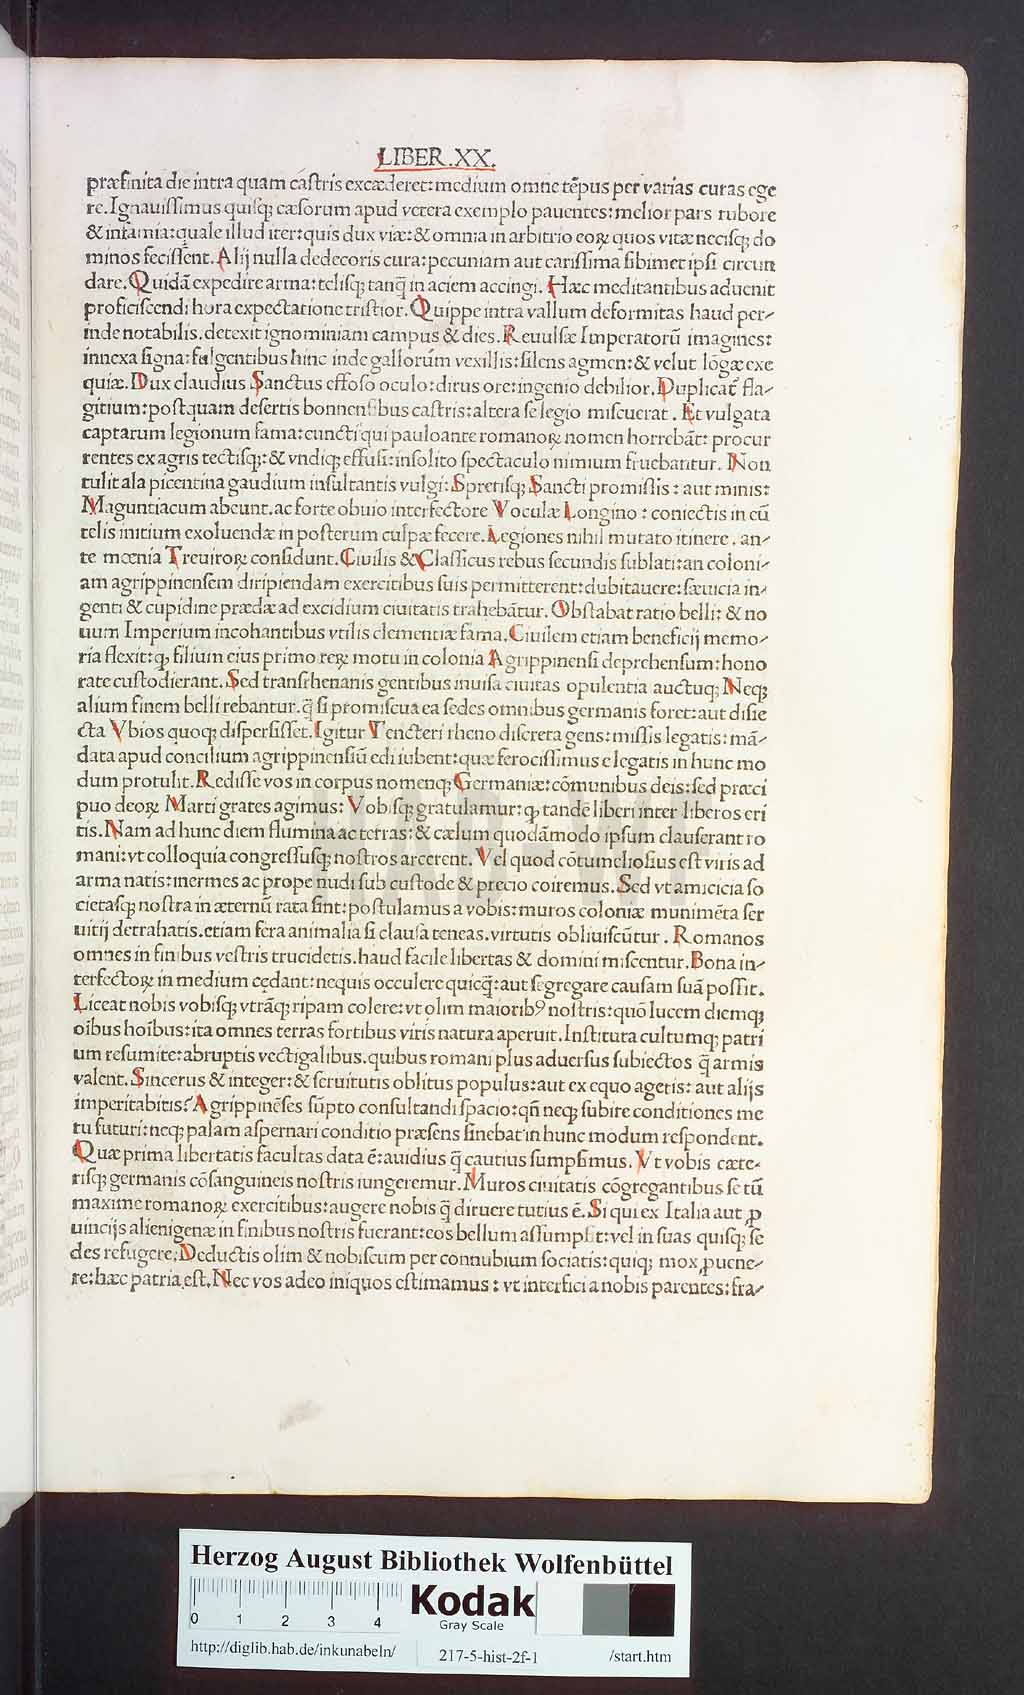 LIBER.XX.
præfinita die intra quam castris excæderet:medium omne tẽpus per varias curas ege
re.Ignauissimus quisq; cæsorum apud vetera exemplo pauentes:melior pars rubore
& infamia:quale illud iter:quis dux viæ:& omnia in arbitrio eoꝝ quos vitæ necisq; do
minos fecissent. Alij nulla dedecoris cura:pecuniam aut carissima sibimet ipsi circun
dare. Quidã expedire arma:telisq; tanq̃ in aciem accingi. Hæc meditantibus aduenit
proficiscendi hora expectatione tristior. Quippe intra vallum deformitas haud per-
inde notabilis. detexit ignominiam campus & dies. Reuulsæ Imperatorũ imagines:
innexa signa: fulgentibus hinc inde gallorum vexillis:silens agmen:& velut lõgæ exe
quiæ. Dux claudius Sanctus effoso oculo:dirus ore:ingenio debilior. Duplicat̃ fla-
gitium:postquam desertis bonnensibus castris:altera se legio miscuerat. Et vulgata
captarum legionum fama:cuncti qui pauloante romanoꝝ nomen horrebãt: procur
rentes ex agris tectisq;:& vndiq; effusi:insolito spectaculo nimium fruebantur. Non
tulit ala picentina gaudium insultantis vulgi:Spretisq; Sancti promissis: aut minis:
Maguntiacum abeunt. ac forte obuio interfectore Voculæ Longino: coniectis in eũ
telis initium exoluendæ in posterum culpæ fecere. Legiones nihil mutato itinere. an-
te mœnia Treuiroꝝ considunt. Ciuilis & Classicus rebus secundis sublati:an coloni-
am agrippinensem diripiendam exercitibus suis permitterent:dubitauere:sæuicia in-
genti & cupidine prædæ ad excidium ciuitatis trahebãtur. Obstabat ratio belli: & no
uum Imperium incohantibus vtilis clementiæ fama. Ciuilem etiam beneficij memo-
ria flexit:q; filium eius primo reꝝ motu in colonia Agrippinensi deprehensum:hono
rate custodierant. Sed transrhenanis gentibus inuisa ciuitas opulentia auctuq; Neq;
alium finem belli rebantur. q̃ si promiscua ea sedes omnibus germanis foret:aut disie
cta Vbios quoq; dispersisset. Igitur Tencteri rheno discreta gens:missis legatis: mã-
data apud concilium agrippinensiũ edi iubent:quæ ferocissimus e legatis in hunc mo
dum protulit. Redisse vos in corpus nomenq; Germaniæ:cõmunibus deis:sed præci
puo deoꝝ Marti grates agimus: Vobisq; gratulamur:q; tandẽ liberi inter liberos eri
tis. Nam ad hunc diem flumina ac terras:& cælum quodãmodo ipsum clauserant ro
mani:vt colloquia congressusq; nostros arcerent. Vel quod cõtumeliosius est viris ad
arma natis:inermes ac prope nudi sub custode & precio coiremus. Sed vt amicicia so
cietasq; nostra in æternũ rata sint:postulamus a vobis:muros coloniæ munimẽta ser
uitij detrahatis.etiam fera animalia si clausa teneas.virtutis obliuiscũtur. Romanos
omnes in finibus vestris trucidetis.haud facile libertas & domini miscentur. Bona in-
terfectoꝝ in medium cędant:nequis occulere quicq̃:aut segregare causam suã possit.
Liceat nobis vobisq; vtrãq; ripam colere:vt olim maiorib⁹ nostris:quõ lucem diemq;
oĩbus hoĩbus:ita omnes terras fortibus viris natura aperuit. Instituta cultumq; patri
um resumite:abruptis vectigalibus.quibus romani plus aduersus subiectos q̃ armis
valent. Sincerus & integer:& seruitutis oblitus populus:aut ex equo agetis: aut alijs
imperitabitis? Agrippinẽses sũpto consultandi spacio:qñ neq; subire conditiones me
tu futuri:neq; palam aspernari conditio præsens sinebat in hunc modum respondent.
Quæ prima libertatis facultas data ẽ:auidius q̃ cautius sumpsimus. Vt vobis cæte-
risq; germanis cõsanguineis nostris iungeremur. Muros ciuitatis cõgregantibus se tũ
maxime romanoꝝ exercitibus:augere nobis q̃ diruere tutius ẽ. Si qui ex Italia aut ꝓ
uincijs alienigenæ in finibus nostris fuerant:eos bellum assumpsit:vel in suas quisq; se
des refugere. Deductis olim & nobiscum per connubium sociatis:quiq; mox ꝓuene-
re:hæc patria est. Nec vos adeo iniquos estimamus: vt interfici a nobis parentes:fra-
HAB-WF
Herzog August Bibliothek Wolfenbüttel
0 1 2 3 4
Kodak
Gray Scale
http://diglib.hab.de/inkunabeln/ 217-5-hist-2f-1 /start.htm